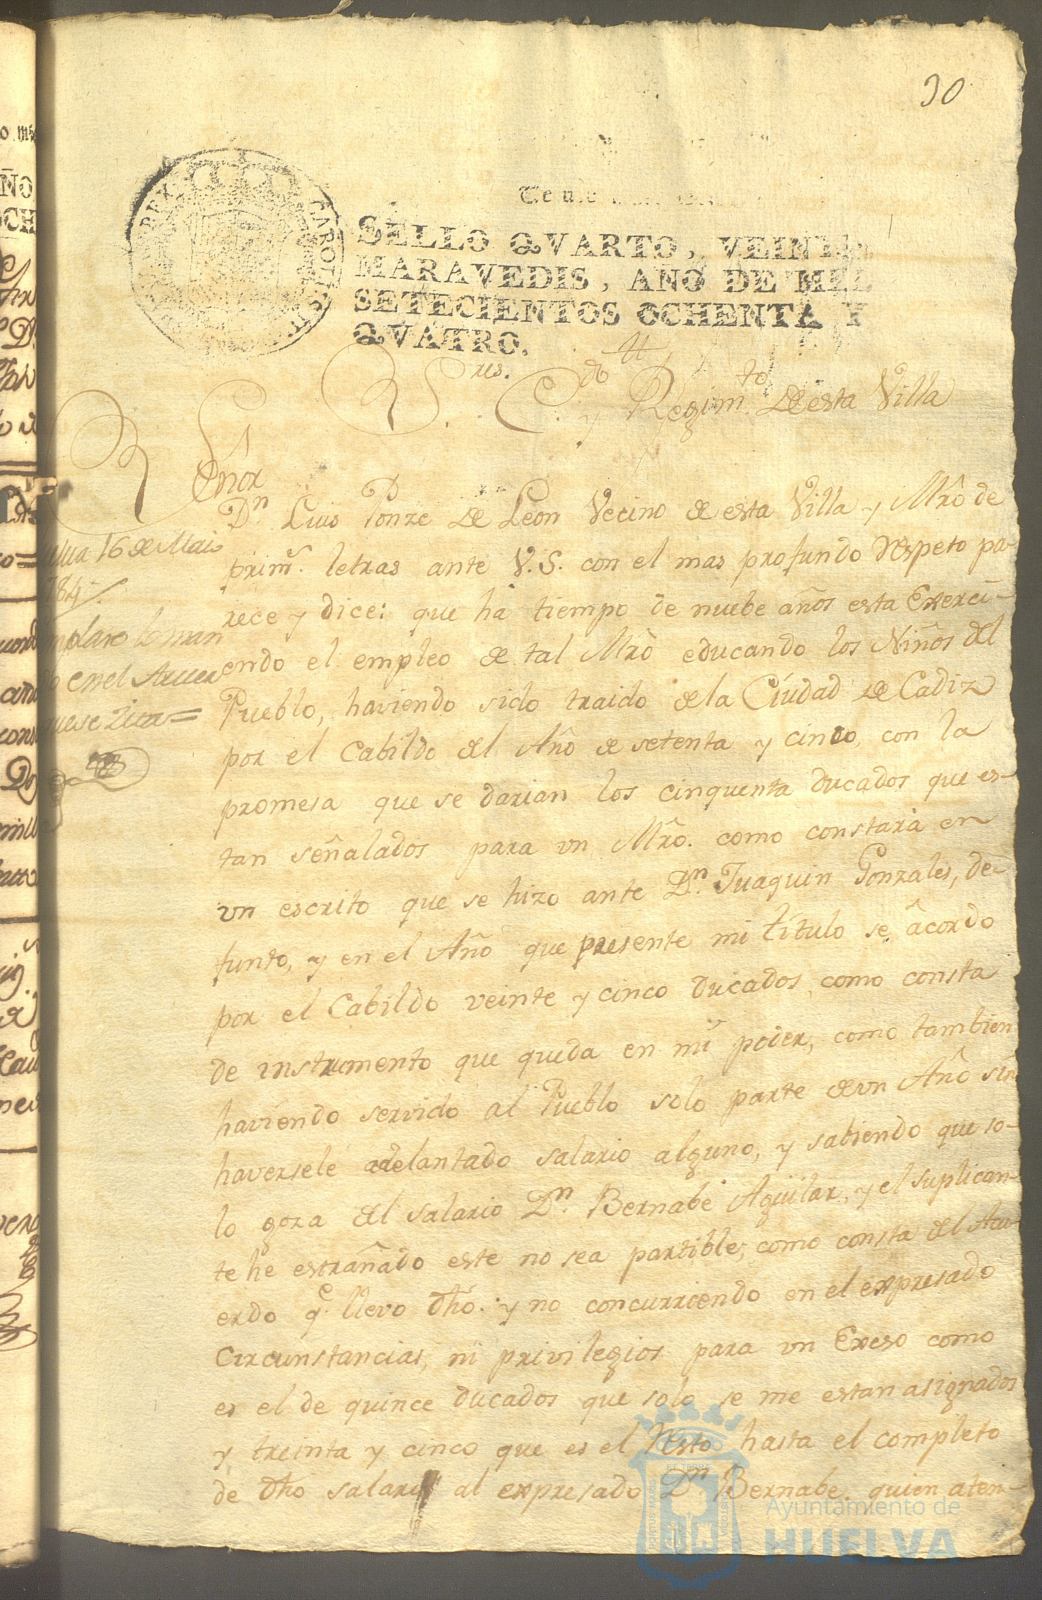 30
SELLO QVARTO, VEINTE
MARAVEDIS, AÑO DE MIL
SETECIENTOS OCHENTA Y
QVATRO.
Sres. C. y Regimto. de esta Villa
Señor
Dn. Luis Ponze de Leon Vecino de esta Villa y Mrõ de
prim.s letras ante V.S. con el mas profundo respeto pa-
rece y dice: que ha tiempo de nuebe años esta Exerci-
endo el empleo de tal Mrõ educando los Niños del
Pueblo, haviendo sido traido de la Ciudad de Cadiz
por el Cabildo del Año de setenta y cinco, con la
promesa que se darian los cinquenta ducados que es-
tan señalados para un Mrõ. como constará en
un escrito que se hizo ante Dn. Juaquin Gonzales, de-
funto, y en el Año que presente mi titulo se acordo
por el Cabildo veinte y cinco ducados, como consta
de instrumento que queda en mi poder, como tambien
haviendo servido al Pueblo solo parte de un Año sin
haversele adelantado salario alguno, y sabiendo que so-
lo goza del salario Dn. Bernabe Aguilar, y el suplican-
te he estrañado este no sea partible, como consta del Acu-
erdo qe. llevo dho. y no concurriendo en el expresado
Circunstancias, ni privilegios para un Exeso como
es el de quince ducados que solo se me estan asignados
y treinta y cinco que es el resto hasta el completo
de dho salario al expresado Dn Bernabe. quien aten-
16 de Maio
784
en el Acuer
Ayuntamiento de
HUELVA